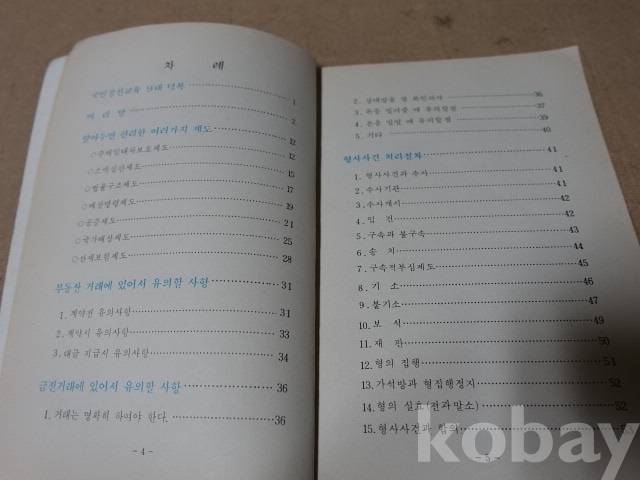 차 례
국민정신교육 9대 덕목 1
머 리 말 2
알아두면 편리한 여러가지 제도 12
○주택임대차보호제도 12
○소액심판제도 15
○법률구조제도 17
○배상명령제도 19
○공증제도 21
○국가배상제도 25
○산재보험제도 28
부동산 거래에 있어서 유의할 사항 31
1. 계약전 유의사항 31
2. 계약시 유의사항 33
3. 대금 지급시 유의사항 34
금전거래에 있어서 유의할 사항 36
1. 거래는 명확히 하여야 한다. 36
- 4 -
2. 상대방을 꼭 확인하자 36
3. 돈을 빌려줄 때 유의할점 37
4. 돈을 빌릴 때 유의할점 39
5. 기타 40
형사사건 처리절차 41
1. 형사사건과 수사 41
2. 수사기관 41
3. 수사개시 42
4. 입 건 42
5. 구속과 불구속 43
6. 송 치 44
7. 구속적부심제도 45
8. 기 소 46
9. 불기소 47
10. 보 석 49
11. 재 판 50
12. 형의 집행 51
13. 가석방과 형집행정지 52
14. 형의 실효(전과말소) 52
15. 형사사건과 합의 53
- 5 -
kobay